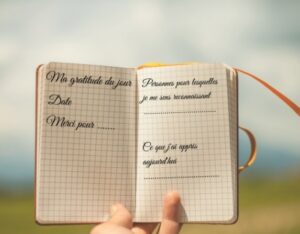 Ma gratitude du jour
Date
Merci pour .......
Personnes pour lesquelles
je me sens reconnaissant
..............................
Ce que j'ai appris
aujourd'hui
..............................